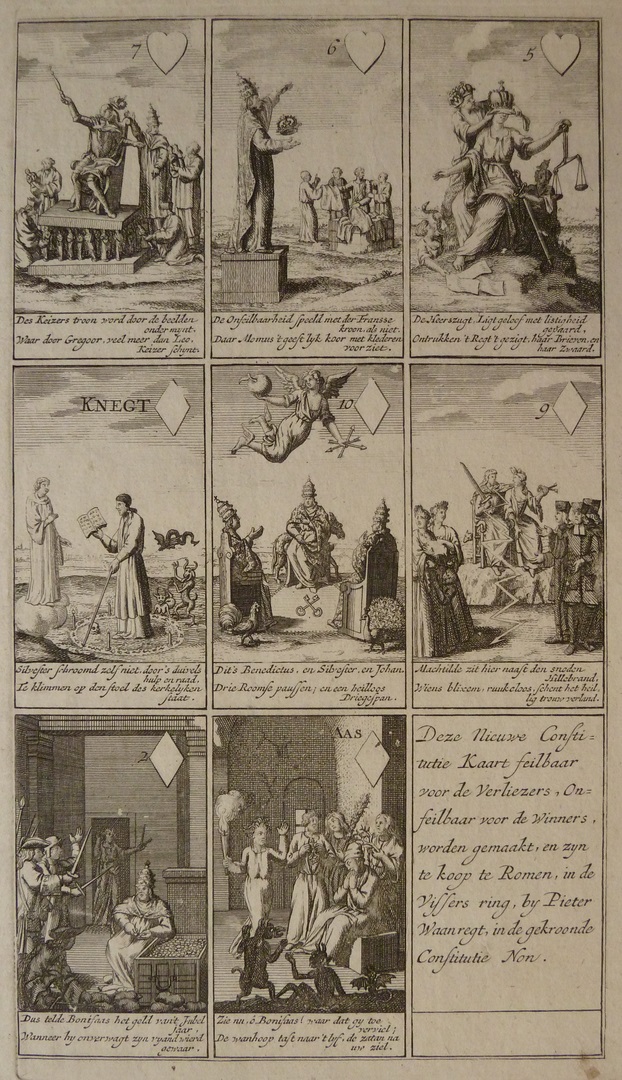 7
Des Keizers troon word door de beelden
ondermynt.
Waar door Gregoor, veel meer dan Leo.
Keizer schynt.
6
De Onfeilbaarheid speeld met der Fransse
kroon, als niet.
Daar Momus 't geestlyk koor met klederen
voorziet.
5
De Heerszugt, Ligtgeloof met listigheid
gepaard.
Ontrukken 't Regt 't gezigt, haar Brieven, en
haar Zwaard.
KNEGT
Silvester schroomd zelf niet, door 's duivels
hulp en raad.
Te klimmen op den stoel des kerkelyken
staat.
10
Dit's Benedictus, en Silvester, en Johan.
Drie Roomse paussen; en een heilloos
Driegspan.
9
Machtilde zit hier naast den snoden
Hillebrand.
Wiens blixem, ruukeloos, schent het heil-
lig trouw verband.
2
Dus telde Bonifaas het geld van't Jubel
Jaar;
Wanneer hy onverwagt zyn vyand wierd
gewaar.
AAS
Zie nu, ô Bonifaas! waar dat gy toe
verviel;
De wanhoop tast naar 't lyf, de zatan na
uw ziel.
Deze Nieuwe Consti-
tutie Kaart feilbaar
voor de Verliezers, On-
feilbaar voor de Winners,
worden gemaakt, en zyn
te koop te Romen, in de
Vissers ring, by Pieter
Waanregt, in de gekroonde
Constitutie Non.